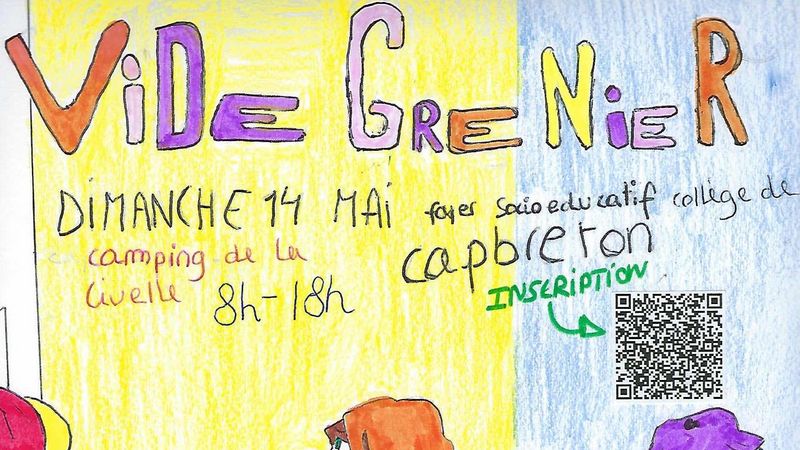 ViDE GRENiER
DiMANCHE 14 MAi foyer socioeducatif collège de
camping de la capbreton
Civelle 8h-18h
INSCRIPTION